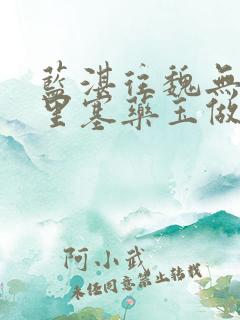 藍湛往魏無
里塞藥玉做
阿小武
未经同意禁止转载